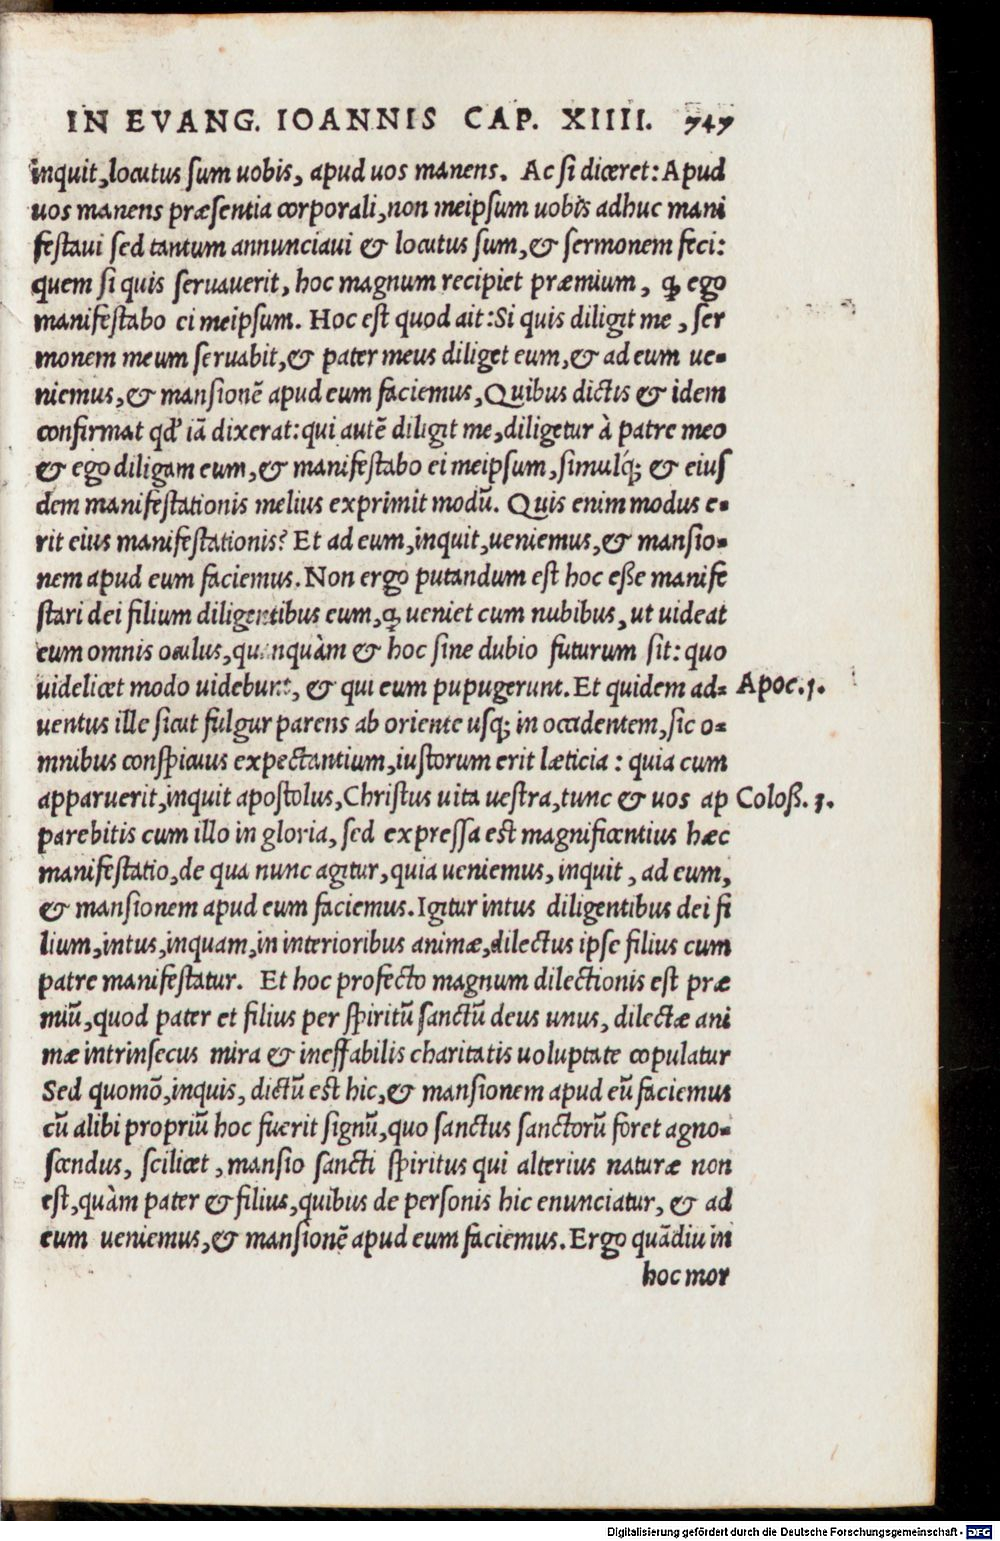 IN EVANG. IOANNIS CAP. XIIII. 747
inquit, locutus sum uobis, apud uos manens. Ac si diceret: Apud
uos manens præsentia corporali, non meipsum uobis adhuc mani
festaui sed tantum annunciaui & locutus sum, & sermonem feci:
quem si quis seruauerit, hoc magnum recipiet præmium, ꝙ ego
manifestabo ei meipsum. Hoc est quod ait: Si quis diligit me, ser
monem meum seruabit, & pater meus diliget eum, & ad eum ue-
niemus, & mansionē apud eum faciemus, Quibus dictis & idem
confirmat qđ iā dixerat: qui autē diligit me, diligetur à patre meo
& ego diligam eum, & manifestabo ei meipsum, simulq́; & eius
dem manifestationis melius exprimit modū. Quis enim modus e-
rit eius manifestationis? Et ad eum, inquit, ueniemus, & mansio-
nem apud eum faciemus. Non ergo putandum est hoc eße manife
stari dei filium diligentibus eum, ꝙ ueniet cum nubibus, ut uideat
eum omnis oculus, quanquàm & hoc sine dubio futurum sit: quo
uidelicet modo uidebunt, & qui eum pupugerunt. Et quidem ad- Apoc. 1.
uentus ille sicut fulgur parens ab oriente usq; in occidentem, sic o-
mnibus conspicuus expectantium, iustorum erit læticia: quia cum
apparuerit, inquit apostolus, Christus uita uestra, tunc & uos ap Coloß. 3.
parebitis cum illo in gloria, sed expressa est magnificentius hæc
manifestatio, de qua nunc agitur, quia ueniemus, inquit, ad eum,
& mansionem apud eum faciemus. Igitur intus diligentibus dei fi
lium, intus, inquam, in interioribus animæ, dilectus ipse filius cum
patre manifestatur. Et hoc profecto magnum dilectionis est præ
miū, quod pater et filius per spiritū sanctū deus unus, dilectæ ani
mæ intrinsecus mira & ineffabilis charitatis uoluptate copulatur
Sed quomō, inquis, dictū est hic, & mansionem apud eū faciemus
cū alibi propriū hoc fuerit signū, quo sanctus sanctorū foret agno-
scendus, scilicet, mansio sancti spiritus qui alterius naturæ non
est, quàm pater & filius, quibus de personis hic enunciatur, & ad
eum ueniemus, & mansionē apud eum faciemus. Ergo quādiu in
hoc mor
Digitalisierung gefördert durch die Deutsche Forschungsgemeinschaft - DFG